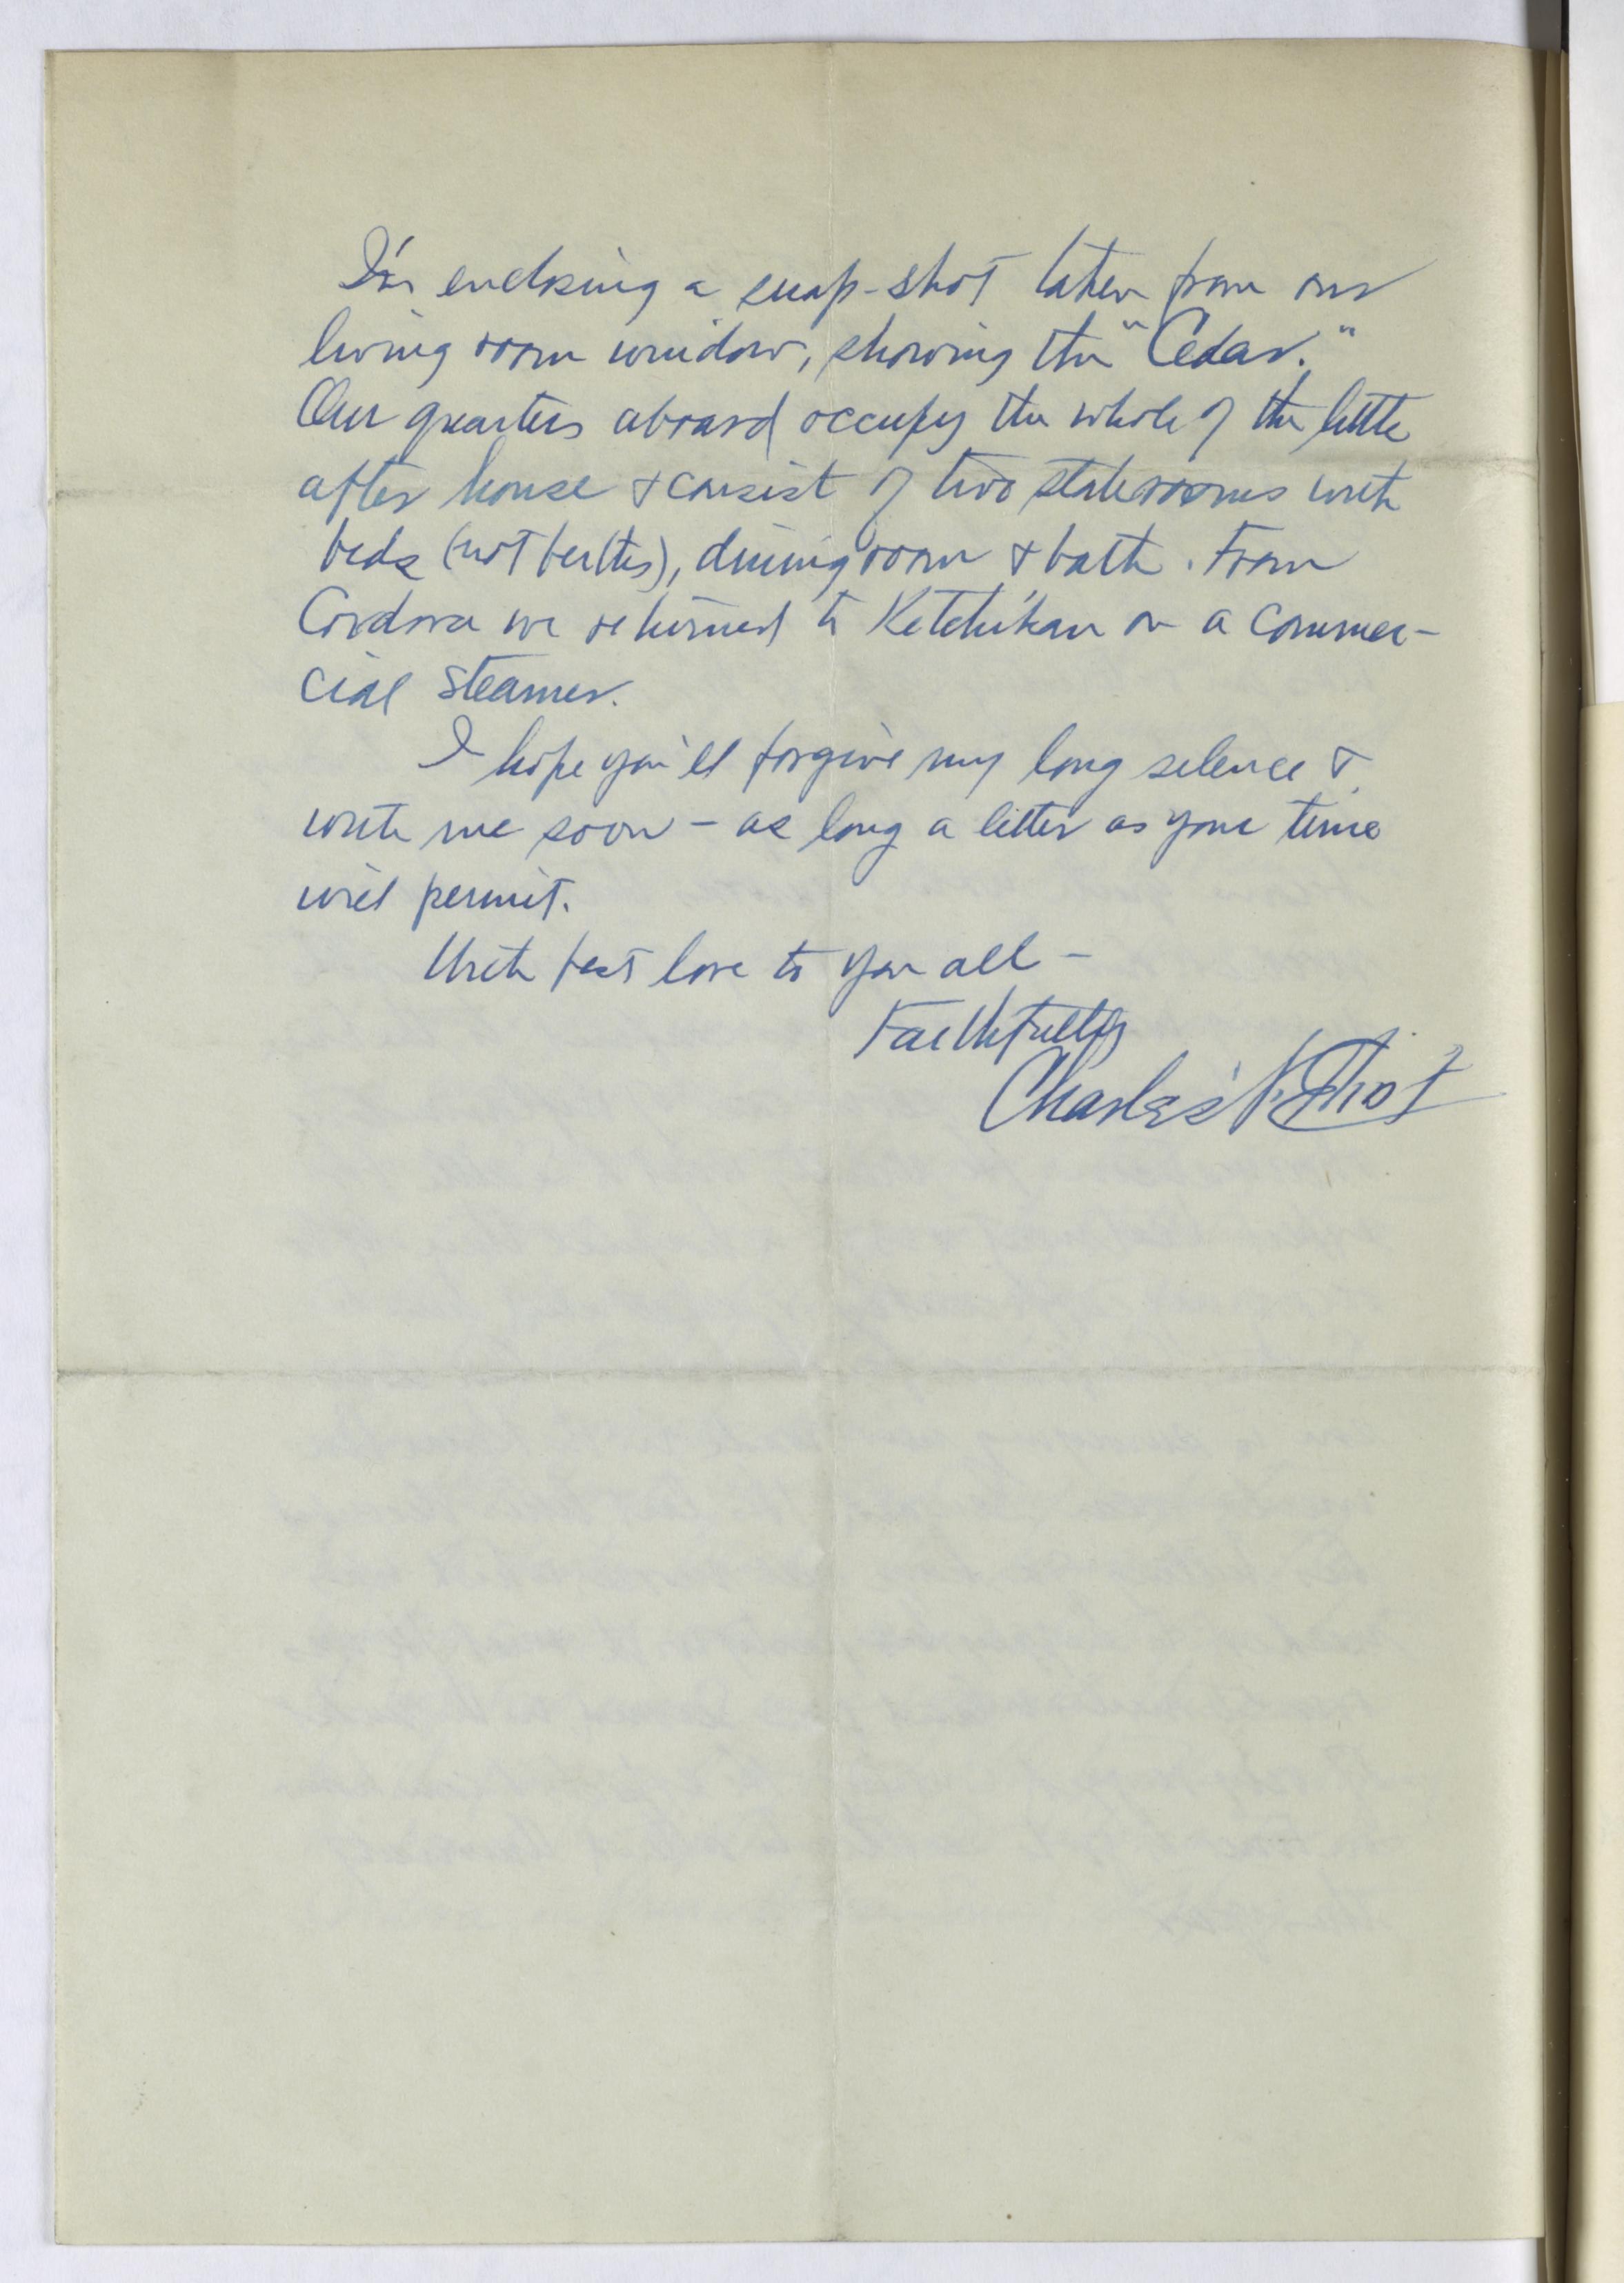 I'm enclosing a snap-shot taken from our
living room window, showing the "Cedar."
Our quarters aboard occupy the whole of the little
after house & consist of two staterooms with
beds (not berths), dining room & bath. From
Cordova we returned to Ketchikan on a commer-
cial steamer.
I hope you'll forgive my long silence &
write me soon - as long a letter as your time
will permit.
With best love to you all -
Faithfully
Charles Eliot